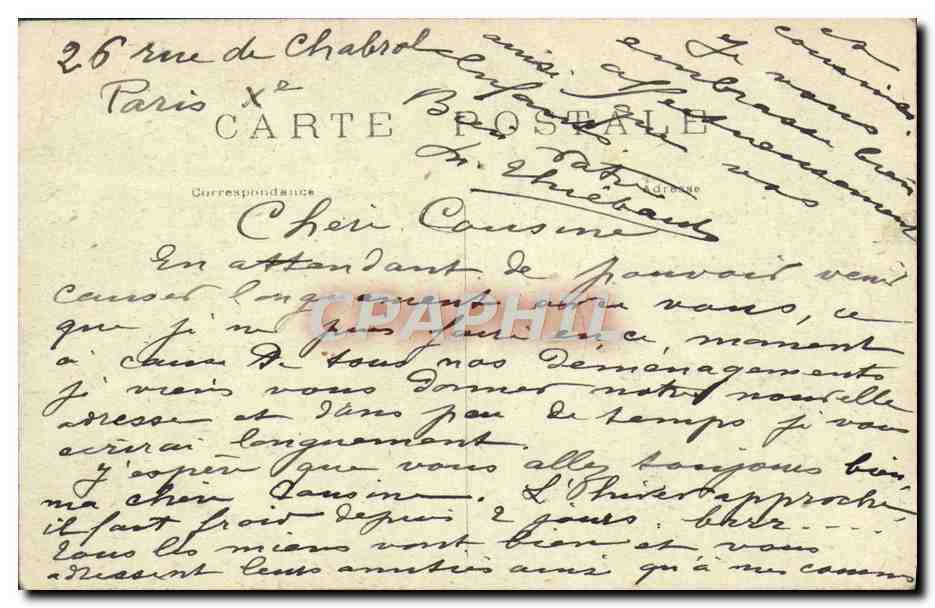 26 rue de Chabrol
Paris Xe
CARTE POSTALE
Correspondance
Adresse
Chère Cousine
En attendant de pouvoir venir
causer longuement avec vous, ce
que je ne puis faire en ce moment
à cause de tous nos déménagements
je viens vous donner notre nouvelle
adresse et dans peu de temps je vous
écrirai longuement.
J'espère que vous allez toujours bien,
ma chère Cousine. L'hiver approche,
il fait froid depuis 2 jours. brrr....
Tous les miens vont bien et vous
adressent leurs amitiés ainsi qu'à mes cousins
et
cousines.
Je vous
embrasse bien
affectueusement
ainsi que vos
enfants
Bien
M. Thiébaut
CPAPHIL